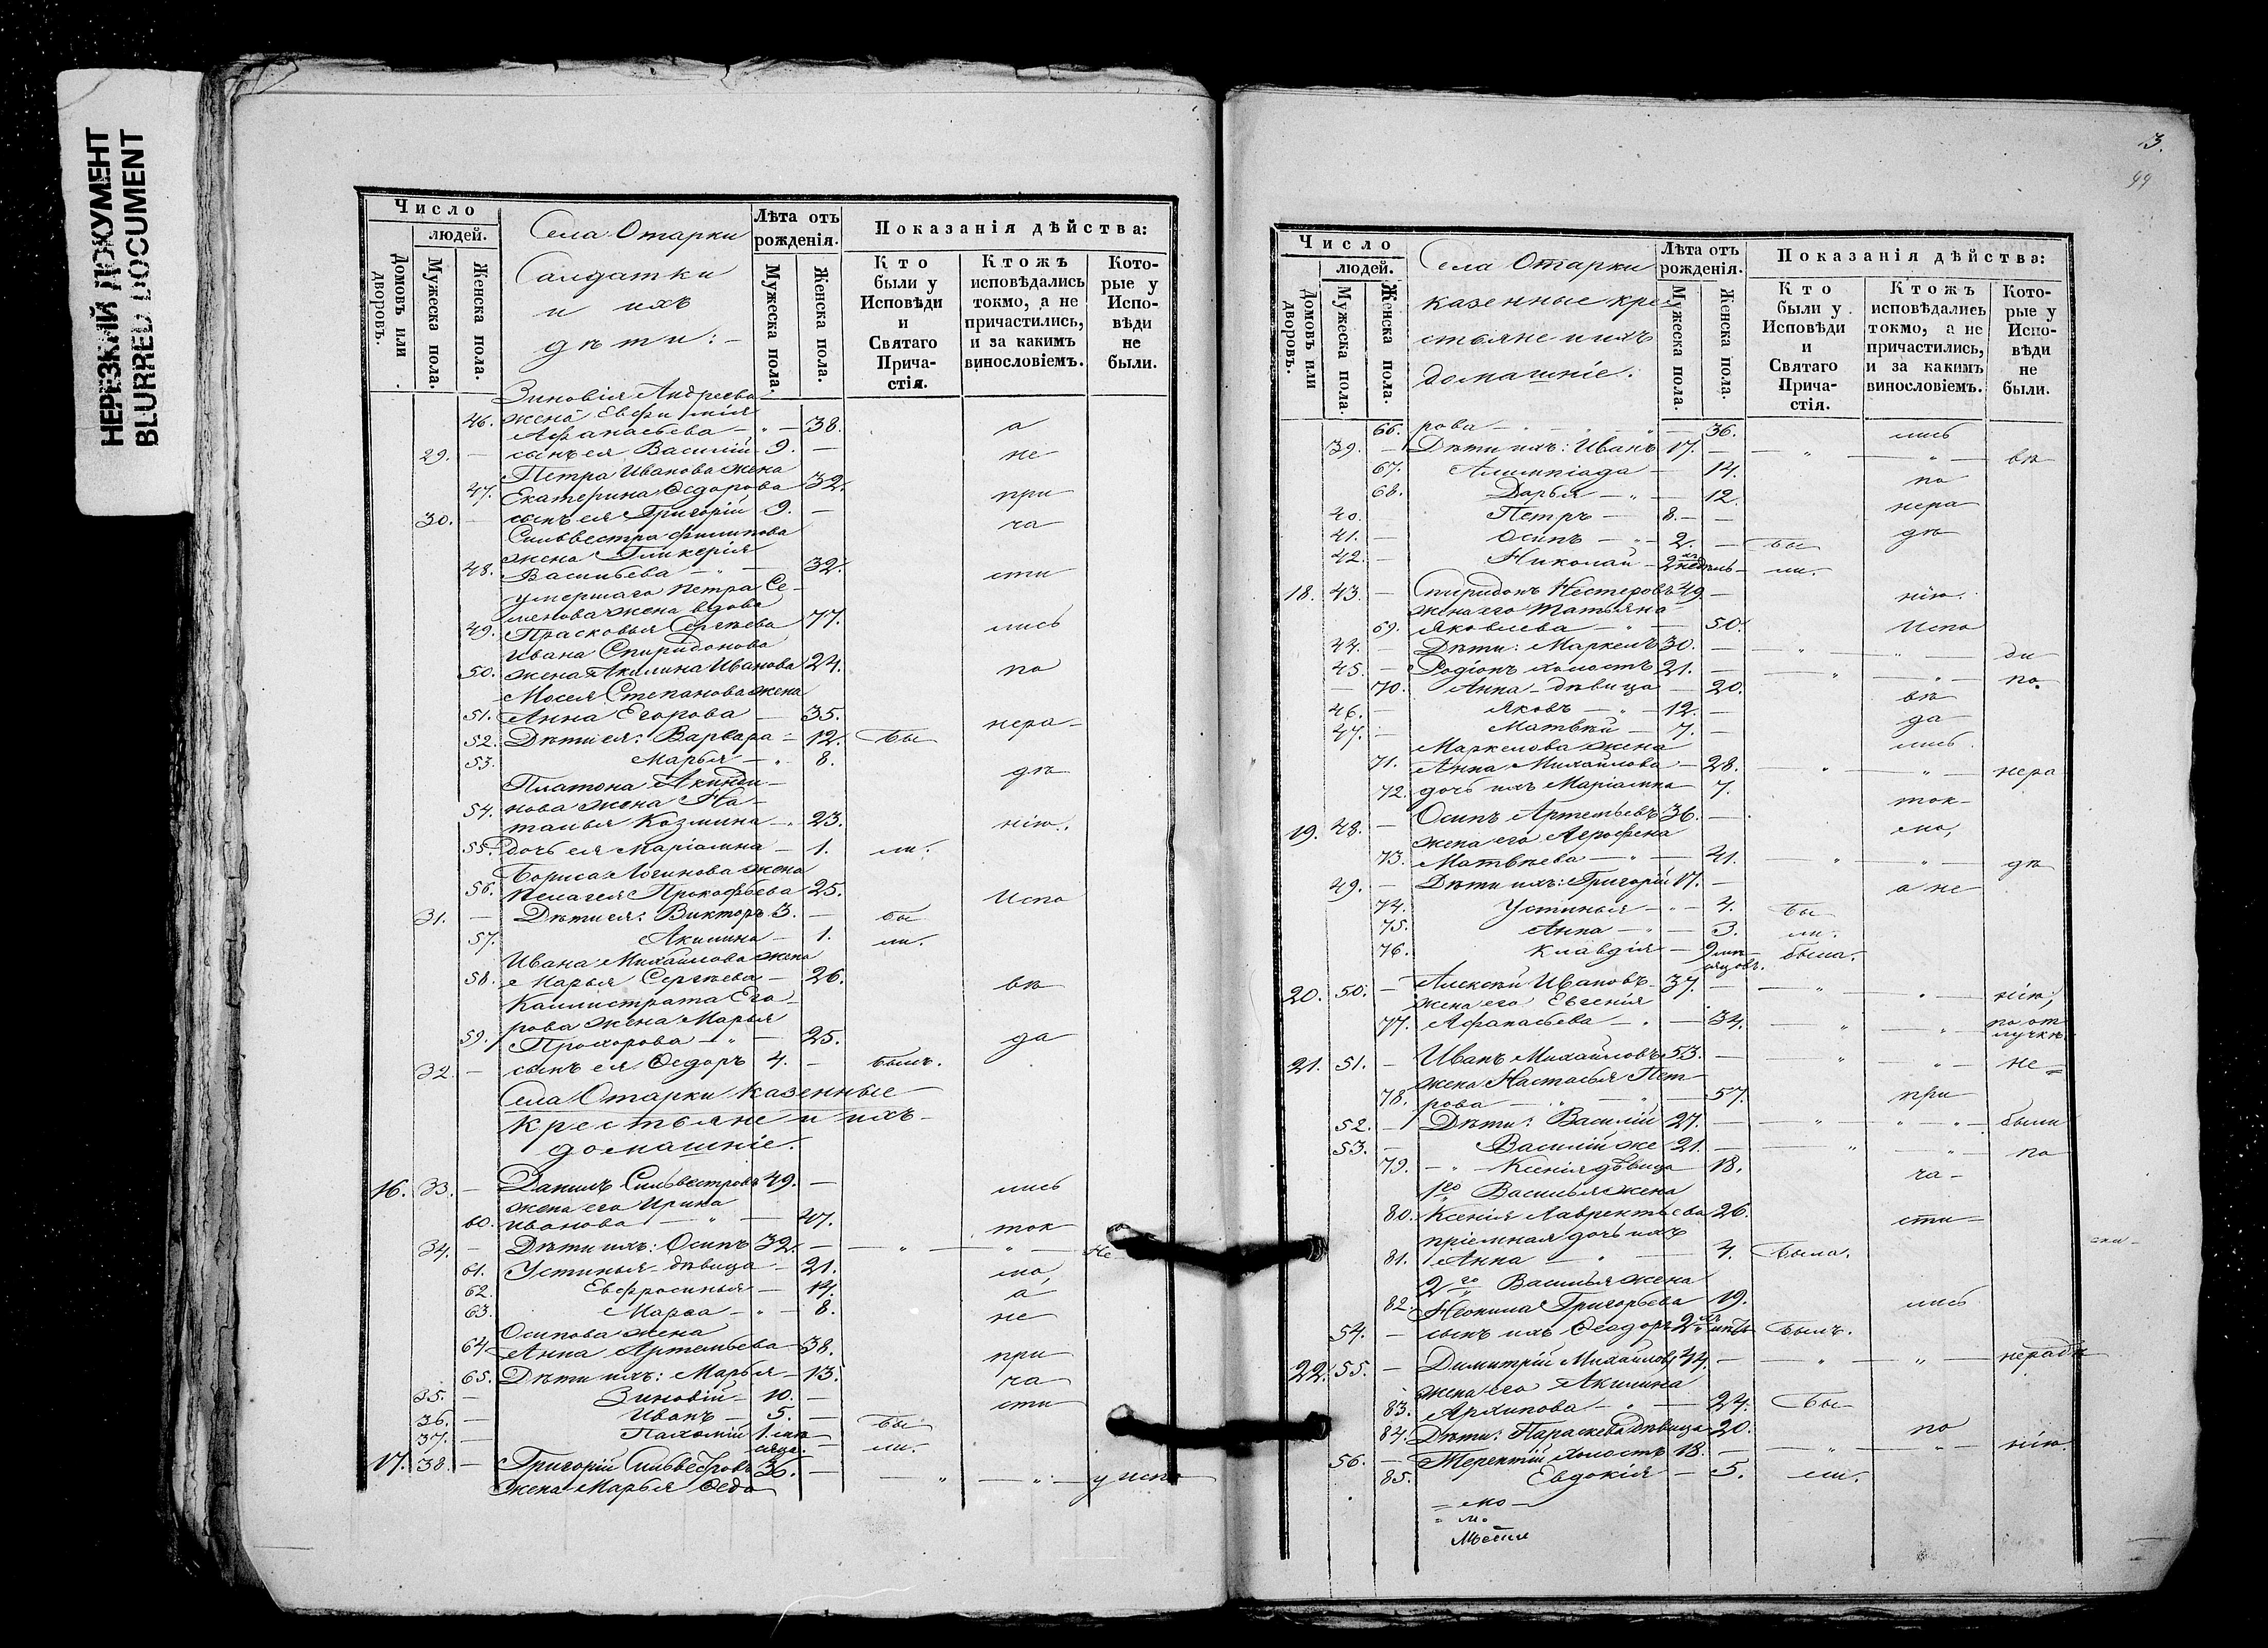 НЕРЕЗКИЙ ДОКУМЕНТ
BLURRED DOCUMENT
Число
людей.
Домовъ или дворовъ.
Мужеска пола.
Женска пола.
Села Отарки
Салдатки
и ихъ
дѣти:
Лѣта отъ рожденія.
Мужеска пола.
Женска пола.
Показанія дѣйства:
Кто были у Исповѣди и Святаго Прича-стія.
Ктожъ исповѣдались токмо, а не причастились, и за какимъ винословіемъ.
Кото-рые у Испо-вѣди не были.
Зиновія Андреева
46. жена Евфимія
Афанасьева — " — 38. а
29. — сынъ ея Василій 9. — не
Петра Иванова жена
47. Екатерина Ѳедорова 32. при
30. — сынъ ея Григорій 9. — ча
Сильвестра Филипова
жена Гликерія
48. Васильева — " — 32. сти
умершаго Петра Се-
менова жена вдова
49. Прасковья Сергѣева 77. лись
Ивана Спиридонова
50. жена Акилина Иванова 24. по
Мосея Степанова жена
51. Анна Егорова — 35. нера-
52. Дѣти ея: Варвара — 12. бы
53. Марья — " 8. дѣ
Платона Акинди-
54. нова жена На-
талья Козмина — 23. нію.
55. дочь ея Маріамна — 1. ли.
Бориса Логинова жена
56. Пелагея Прокофьева 25. Испо
31. — Дѣти ея: Викторъ 3. — бы
57. Акилина — 1. ли.
Ивана Михайлова жена
58. Марья Сергѣева — 26. вѣ
Каллистрата Его-
рова жена Марья
59. Прохорова — " — 25. да
32. — сынъ ея Ѳедоръ 4. — былъ.
Села Отарки казенные
крестьяне и ихъ
домашніе.
16. 33. — Данилъ Сильвестровъ 49. — лись
жена его Ирина
60. Иванова — " — 47. ток
34. — Дѣти ихъ: Осипъ 32. — " — " — Не
61. Устинья дѣвица — 21. мо,
62. Евфросинья — 14. а
63. Марѳа — " — 8. не
Осипова жена
64. Анна Артемьева — 38. при
65. Дѣти ихъ: Марья — 13. ча
35. — Зиновій — 10. — сти
36. — Иванъ — 5. — бы
37. — Пахомій 1 мѣ
сяца. — ли.
17. 38. — Григорій Сильвестровъ 36. — " — " — у испо
жена Марья Ѳедо
3.
99
Число
людей.
Домовъ или дворовъ.
Мужеска пола.
Женска пола.
Села Отарки
казенные кре
стьяне и ихъ
домашніе.
Лѣта отъ рожденія.
Мужеска пола.
Женска пола.
Показанія дѣйства:
Кто были у Исповѣди и Святаго Прича-стія.
Ктожъ исповѣдались токмо, а не причастились, и за какимъ винословіемъ.
Кото-рые у Испо-вѣди не были.
66. рова — " — 36. лись
39. — Дѣти ихъ: Иванъ 17. — " — " — вѣ
67. Алимпіада — 14. по
68. Дарья — " — 12. нера
40. — Петръ — 8. —
41. — Осипъ — " 2. — бы дѣ
42. — Николай — 2хъ недѣль — ли.
18. 43. — Спиридонъ Нестеровъ 49 — нію.
жена его Татьяна
69. Яковлева — " — 50. Испо
44. — Дѣти: Маркелъ 30. — " — " — ди
45. — Родіонъ холостъ 21. — " — " — по
70. Анна — дѣвица — 20. вѣ
46. — Яковъ — " 12. — да
47. — Матвѣй — 7. —
Маркелова жена лись
71. Анна Михайлова — 28. — " — " — нера
72. дочь ихъ Маріамна 7. ток-
19. 48. — Осипъ Артемьевъ 36. — мо,
жена его Агрофена
73. Матвѣева — " — 41. — " — " — дѣ
49. — Дѣти ихъ: Григорій 17. — а не
74. Устинья — " — 4. бы
75. Анна — " — 3. ли.
76. Клавдія — 9 мѣ-
сяцовъ. была.
20. 50. — Алексѣй Ивановъ 37. — " — " — нію,
жена его Евгенія
77. Афанасьева — " — 34. — " — " — по от
лучкѣ.
21. 51. — Иванъ Михайловъ 53. — " — " — не
жена Настасья Пет-
78. рова — " — 57. при
52. — Дѣти: Василій 27. — " — " — были
53. — Василій же 21. — " — " — по
79. — " — Ксенія дѣвица 18. ча-
1го Василья жена
80. Ксенія Лаврентьева 26. сти
пріемная дочь ихъ
81. Анна — " — 4. была.
2го Василья жена
82. Неонила Григорьева 19. лись
54. — сынъ ихъ Ѳеодоръ былъ.
22. 55. — Димитрій Михайловъ 44. — " — " — нерадѣ
жена его Акилина
83. Архипова — " — 24. бы-
84. Дѣти: Параскева дѣвица 20. по
56. — Терентій холостъ 18. — " — " — нію.
85. Евдокія — 5. ли.
= мо —
= м.